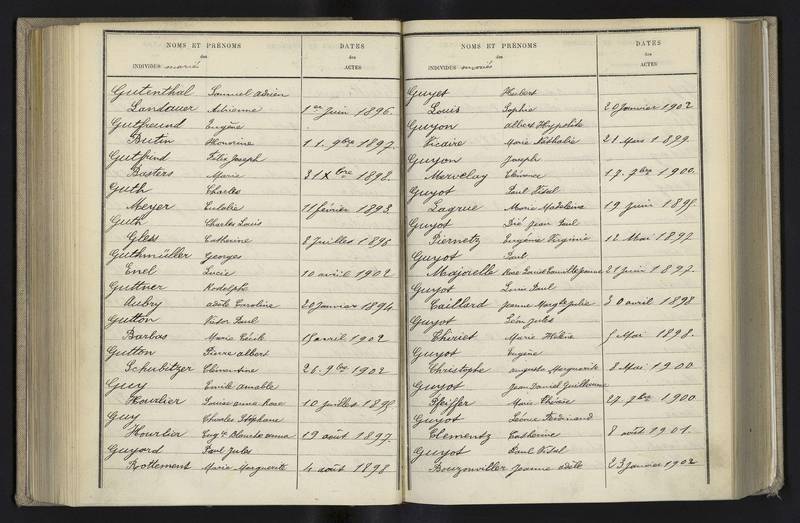 NOMS ET PRÉNOMS
des
INDIVIDUS mariés
DATES
des
ACTES
Gutenthal Samuel Adrien
Landauer Adrienne 1er Juin 1896.
Gutfreund Eugène
Butin Honorine 11. 9bre 1897.
Gutfrind Félix Joseph
Basters Marie 31 Xbre 1898.
Guth Charles
Meyer Eulalie 11 février 1893.
Guth Charles Louis
Gless Catherine 8 Juillet 1896
Guthmüller Georges
Enel Lucie 10 avril 1902
Guttner Rodolphe
Aubry Adèle Caroline 20 Janvier 1894
Gutton Victor Paul
Barbas Marie Cécile 15 avril 1902
Gutton Pierre Albert
Schubitzer Clémentine 26. 9bre 1902
Guy Emile Amable
Hourlier Louise Anna Rose 10 Juillet 1895
Guy Charles Stéphane
Hourlier Eugie Blanche Anna 19 août 1897.
Guyard Paul Jules
Rottement Marie Marguerite 4 août 1898
NOMS ET PRÉNOMS
des
INDIVIDUS mariés
DATES
des
ACTES
Guyot Hubert
Louis Sophie 20 Janvier 1902
Guyon Albert Hyppolite
Vicaire Marie Nathalie 21 Mars 1899.
Guyon Joseph
Mervelay Clémence 12. 7bre 1900.
Guyot Paul Vital
Lagrue Marie Madeleine 19 Juin 1895.
Guyot Dié Jean Paul
Piernetz Eugénie Virginie 12 Mai 1897
Guyot Paul
Majorelle Rose Louise Camille Jeanne 21 Juin 1897.
Guyot Louis Paul
Caillard Jeanne Margte Julie 30 avril 1898
Guyot Léon Jules
Thiriet Marie Hélène 5 Mai 1898.
Guyot Eugène
Christophe Augusta Marguerite 8 Mai 1900
Guyot Jean Daniel Guillaume
Pfeiffer Marie Thérèse 29. 7bre 1900.
Guyot Léonce Ferdinand
Clementz Catherine 8 août 1901.
Guyot Paul Vital
Bouzonviller Jeanne Adèle 23 Janvier 1902